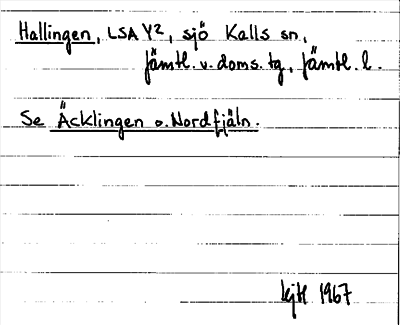 Hallingen, LSA Y2, sjö Kalls sn,
Jämtl. v. doms. tg, Jämtl. l.
Se Äcklingen o. Nordfjäln.
1967